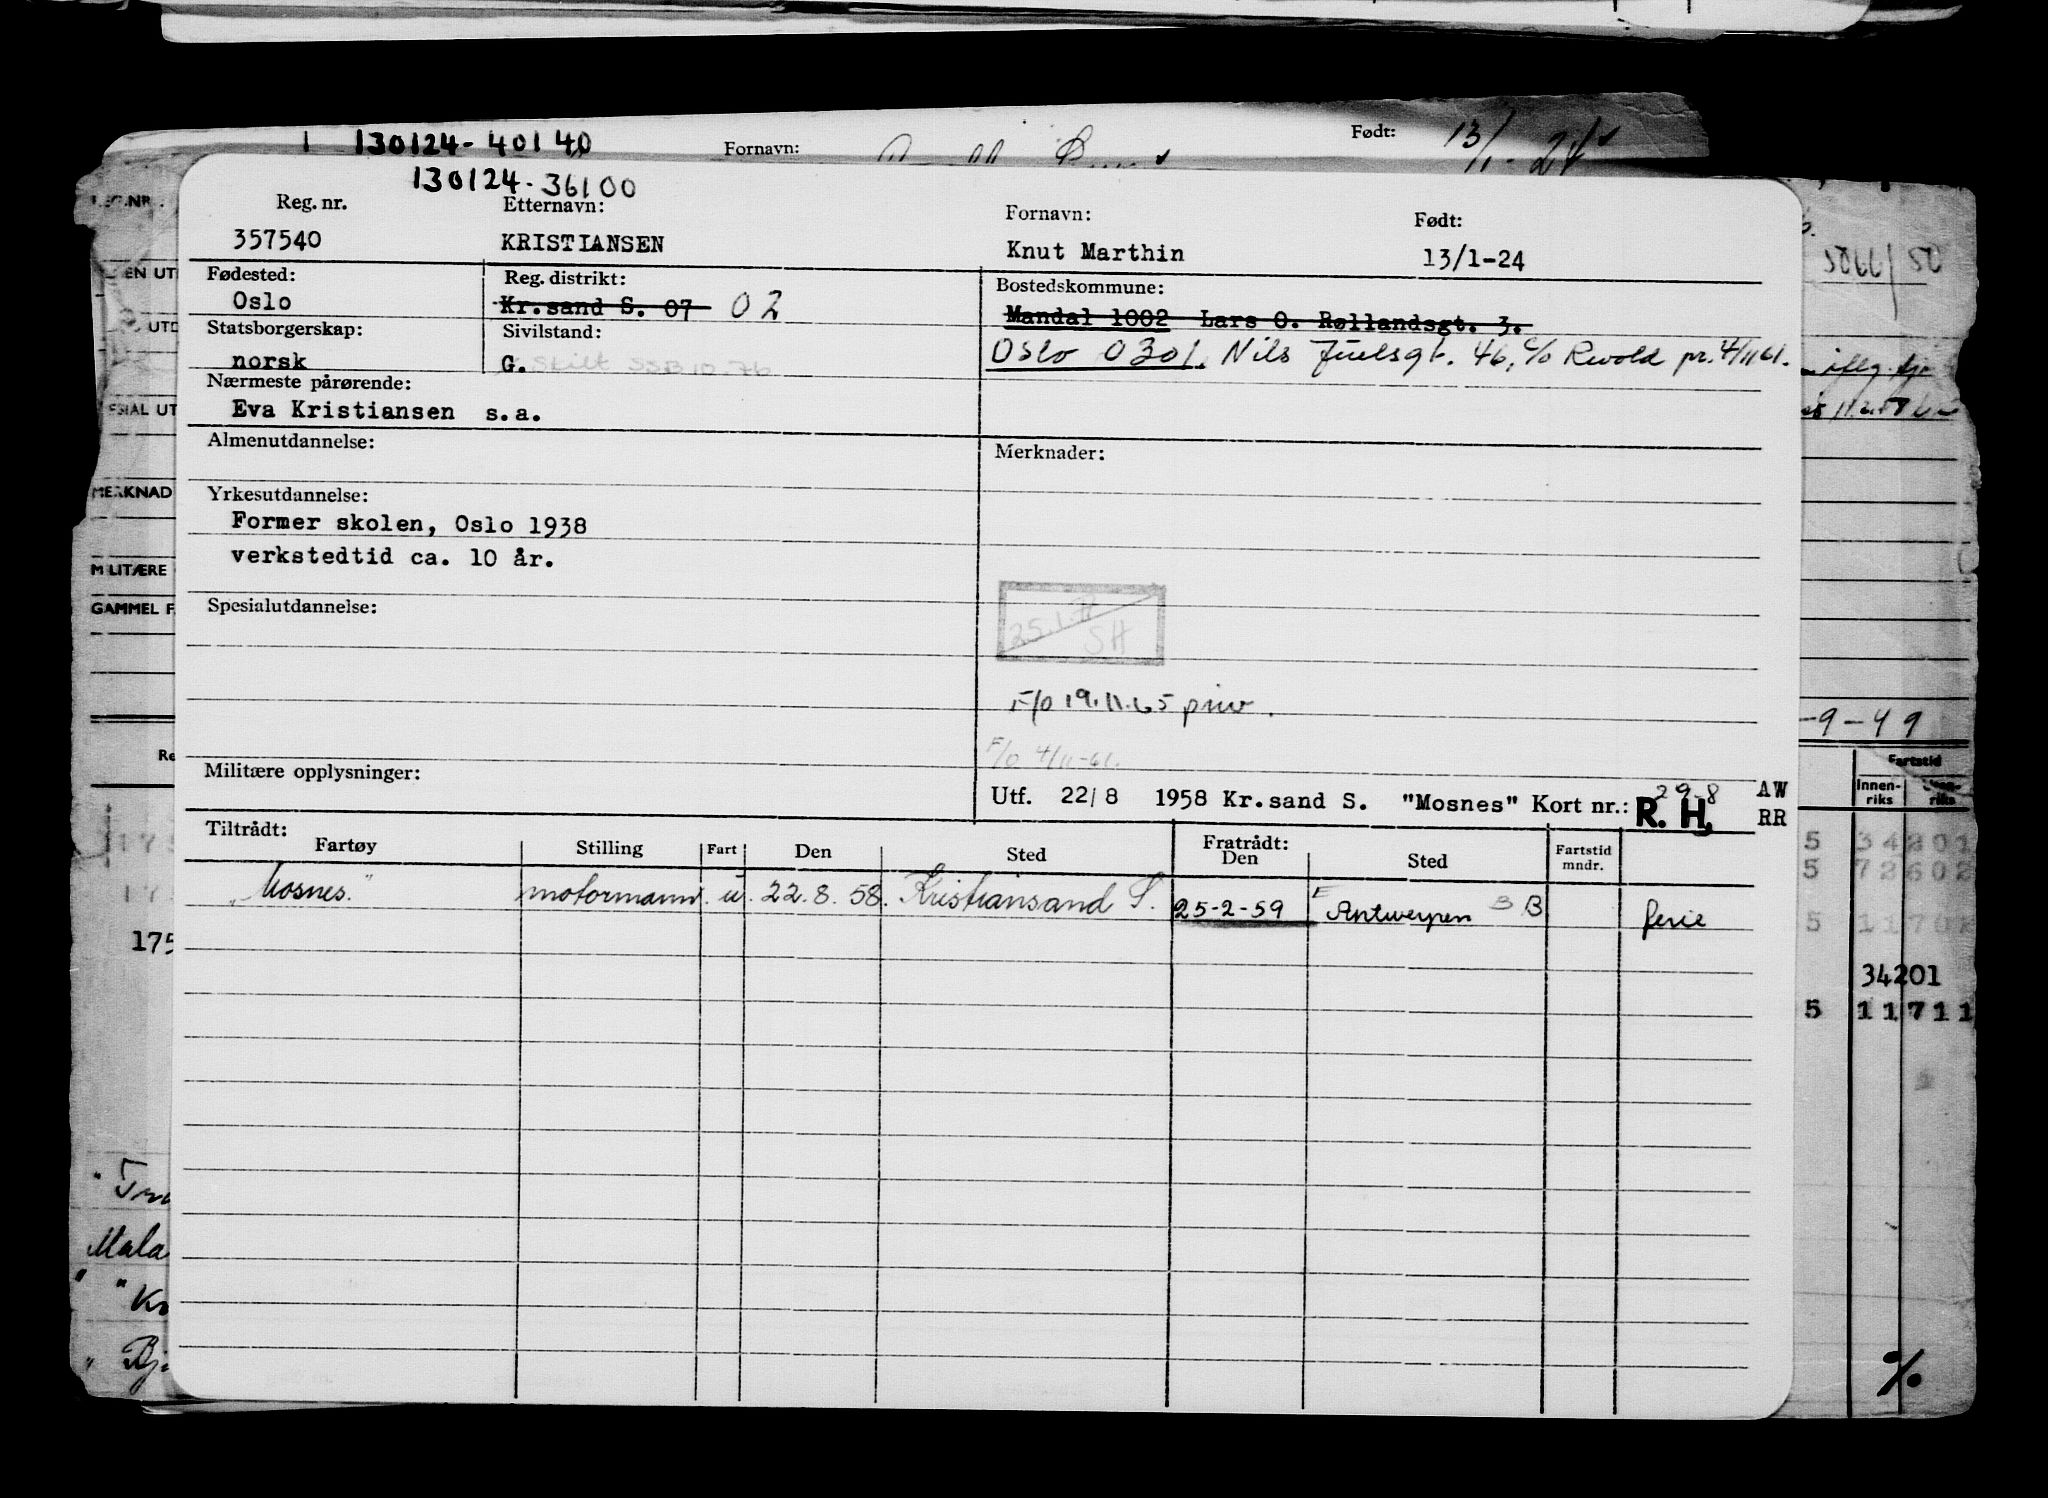 130124-40140
Fornavn:
Født: 13/1-24
130124-36100
Reg. nr. Etternavn: Fornavn: Født:
357540 KRISTIANSEN Knut Marthin 13/1-24
Fødested: Reg. distrikt: Bostedskommune:
Oslo Kr.sand S. 07 02 Mandal 1002 Lars O. Røllandsgt. 3.
Statsborgerskap: Sivilstand:
norsk G. Skilt SSB 10.76 Oslo 0301. Nils Juelsgt. 46, c/o Rwold pr. 4/11 61.
Nærmeste pårørende:
Eva Kristiansen s.a.
Almenutdannelse: Merknader:
Yrkesutdannelse:
Former skolen, Oslo 1938
verkstedtid ca. 10 år.
Spesialutdannelse:
25.1.
SH
F/o 19.11.65 priv.
F/o 4/11-61.
Militære opplysninger:
Utf. 22/8 1958 Kr.sand S. "Mosnes" Kort nr.: R. H. 29-8 AW
RR
Tiltrådt: Fratrådt:
Fartøy Stilling Fart Den Sted Den Sted Fartstid mndr.
"Mosnes" motormann u. 22.8.58. Kristiansand S. 25-2-59 E Antwerpen B B ferie
MERKNAD
MILITÆRE
GAMMEL F
175
Mala
5066/50
-9-49
Fartstid
Innen-
riks
5 34201
5 72602
34201
5 11711
%